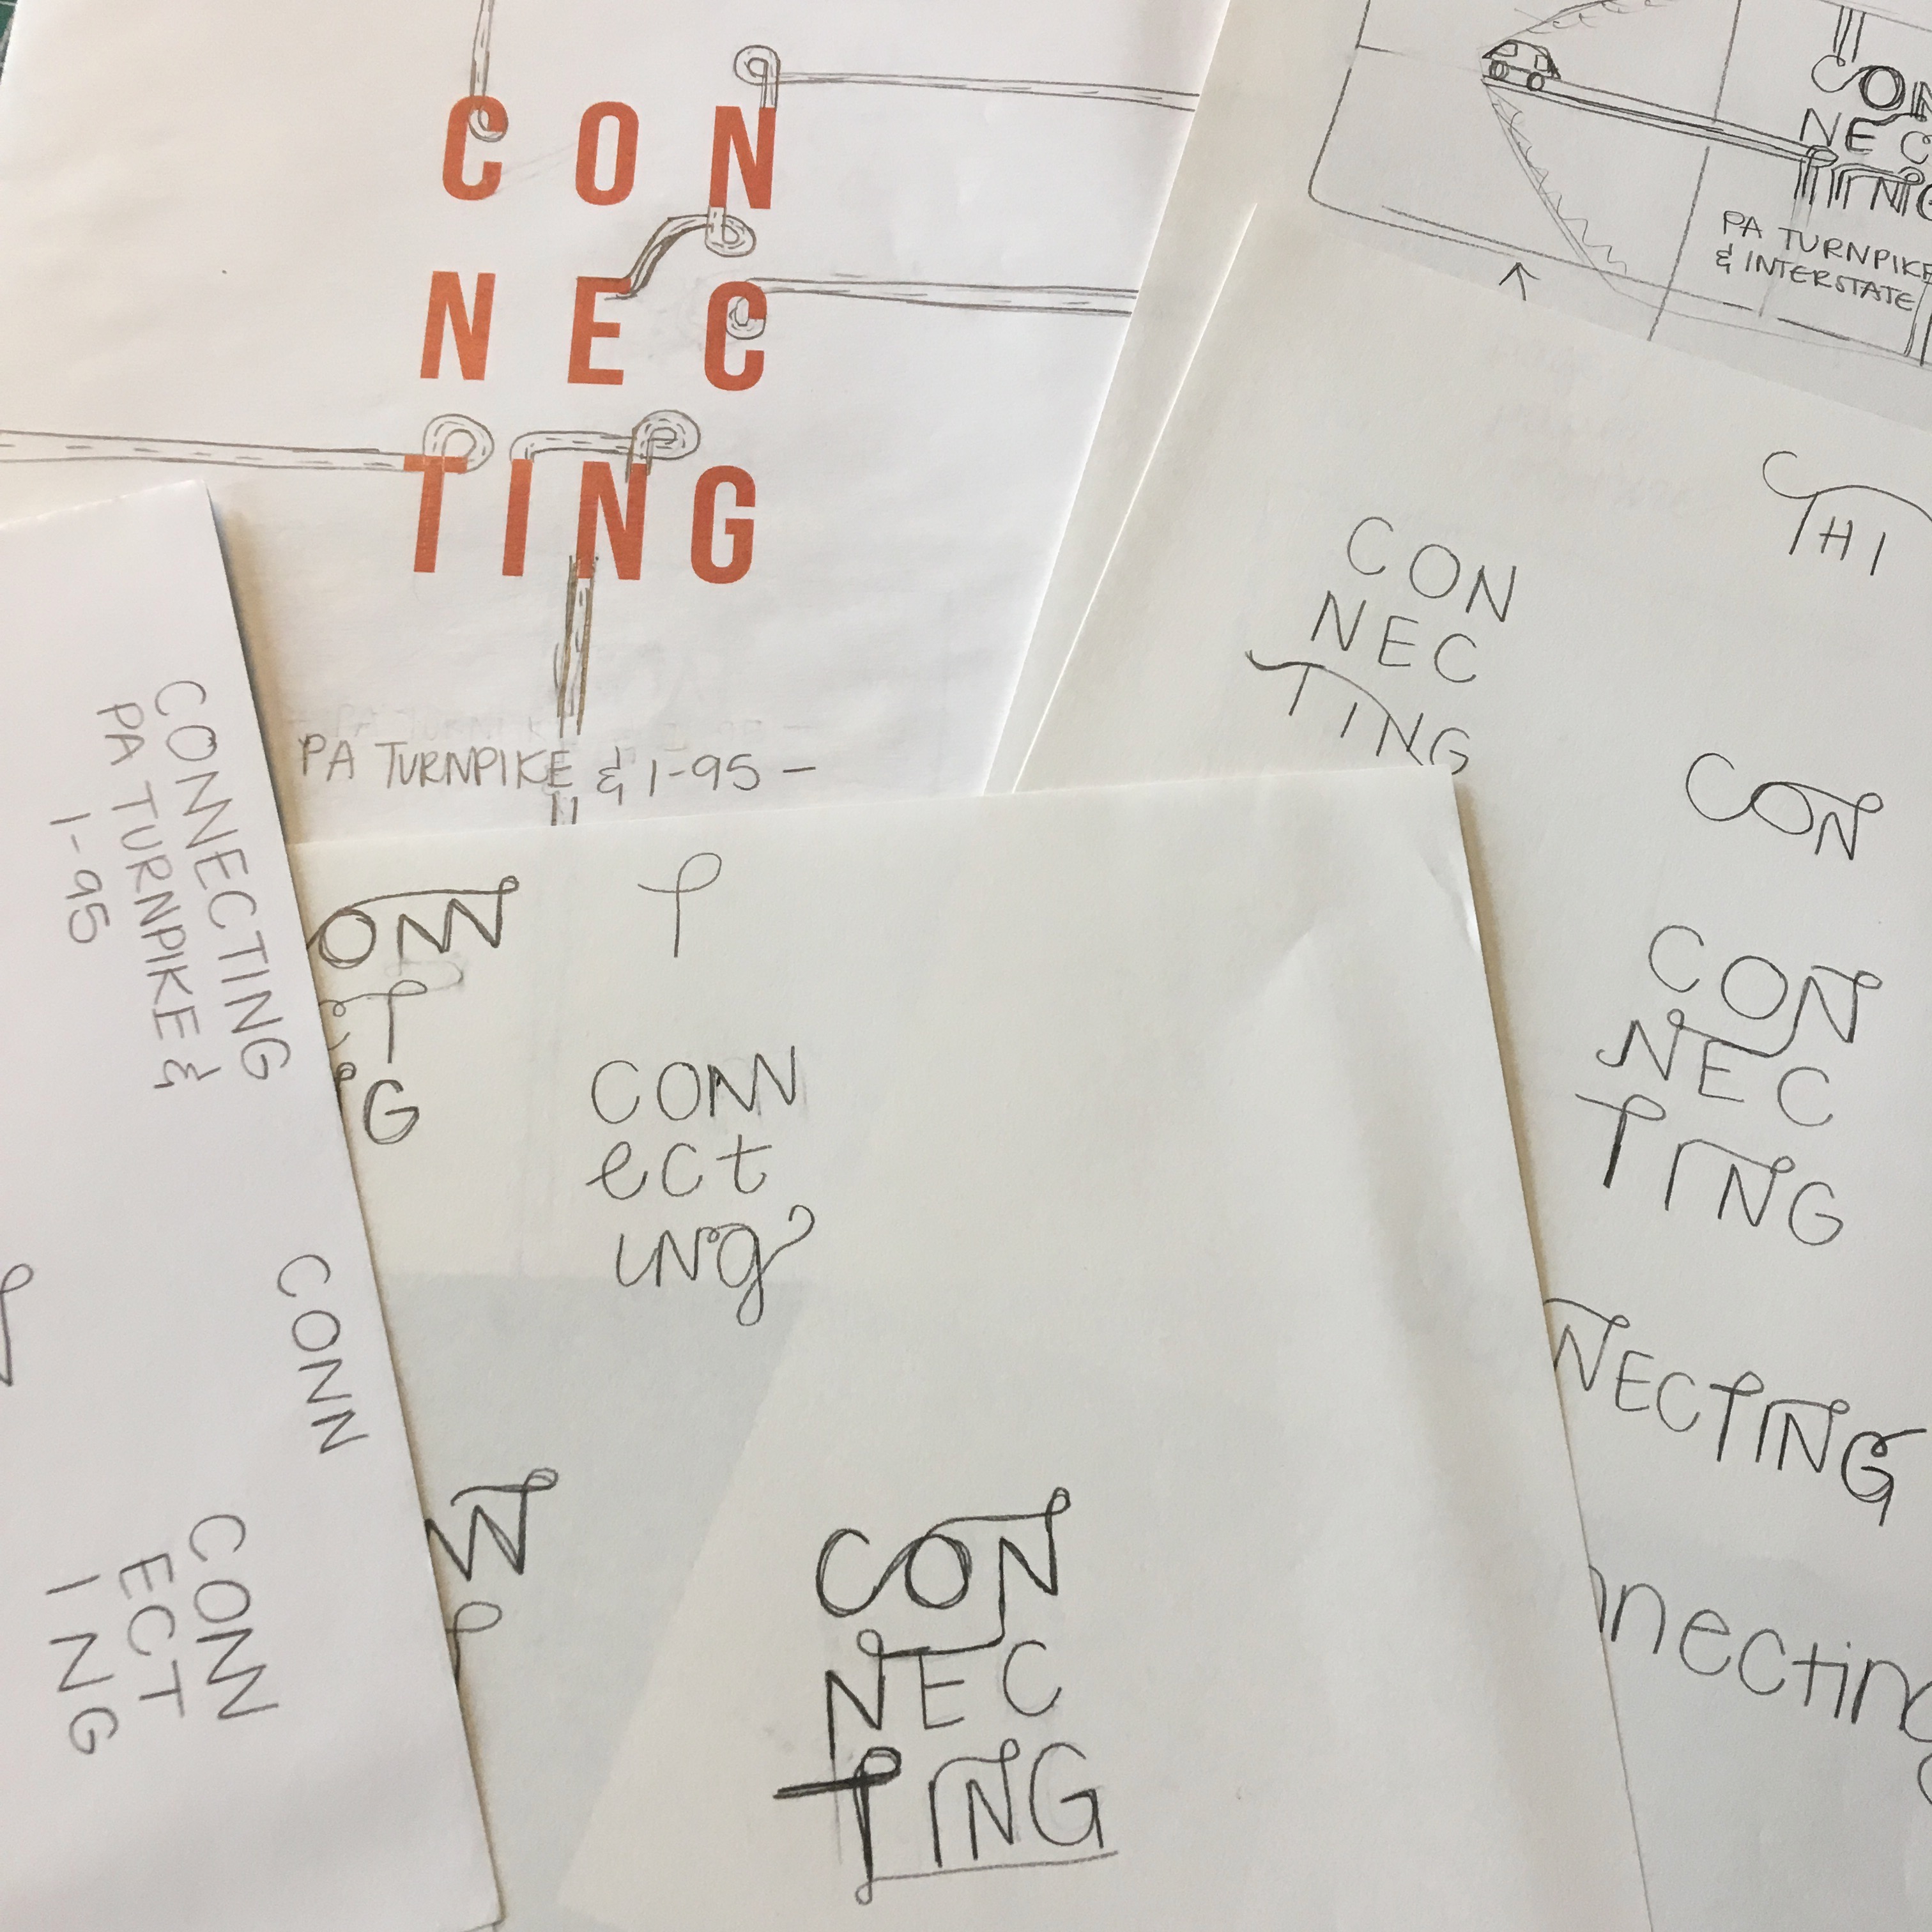 CON
NEC
TING
PA TURNPIKE & I-95 -
CON
NEC
TING
PA TURNPIKE
& INTERSTATE
THI
CON
NEC
TING
CON
CON
NEC
TING
NECTING
necting
CONNECTING
PA TURNPIKE &
I-95
CONN
CONN
ECT
ING
ONN
T
G
T
CONN
ect
ing
CON
NEC
TING